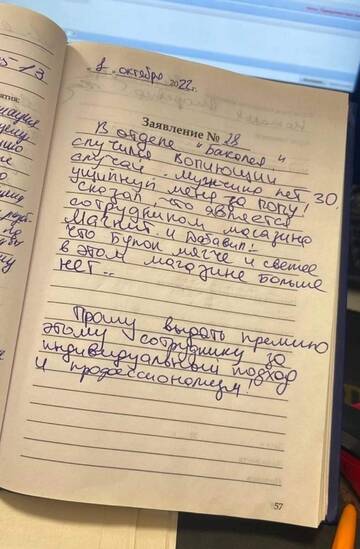 1 октября 2022г.
Заявление № 28
В отделе "Бакалея"
случился вопиющий
случай. Мужчина лет 30,
ущипнул меня за попу!
Сказал, что является
сотрудником магазина
Магнит. и Добавил!
что булок мягче и свежее
в этом магазине больше
нет..
Прошу выдать премию
этому сотруднику за
индивидуальный подход
и профессионализм!
57